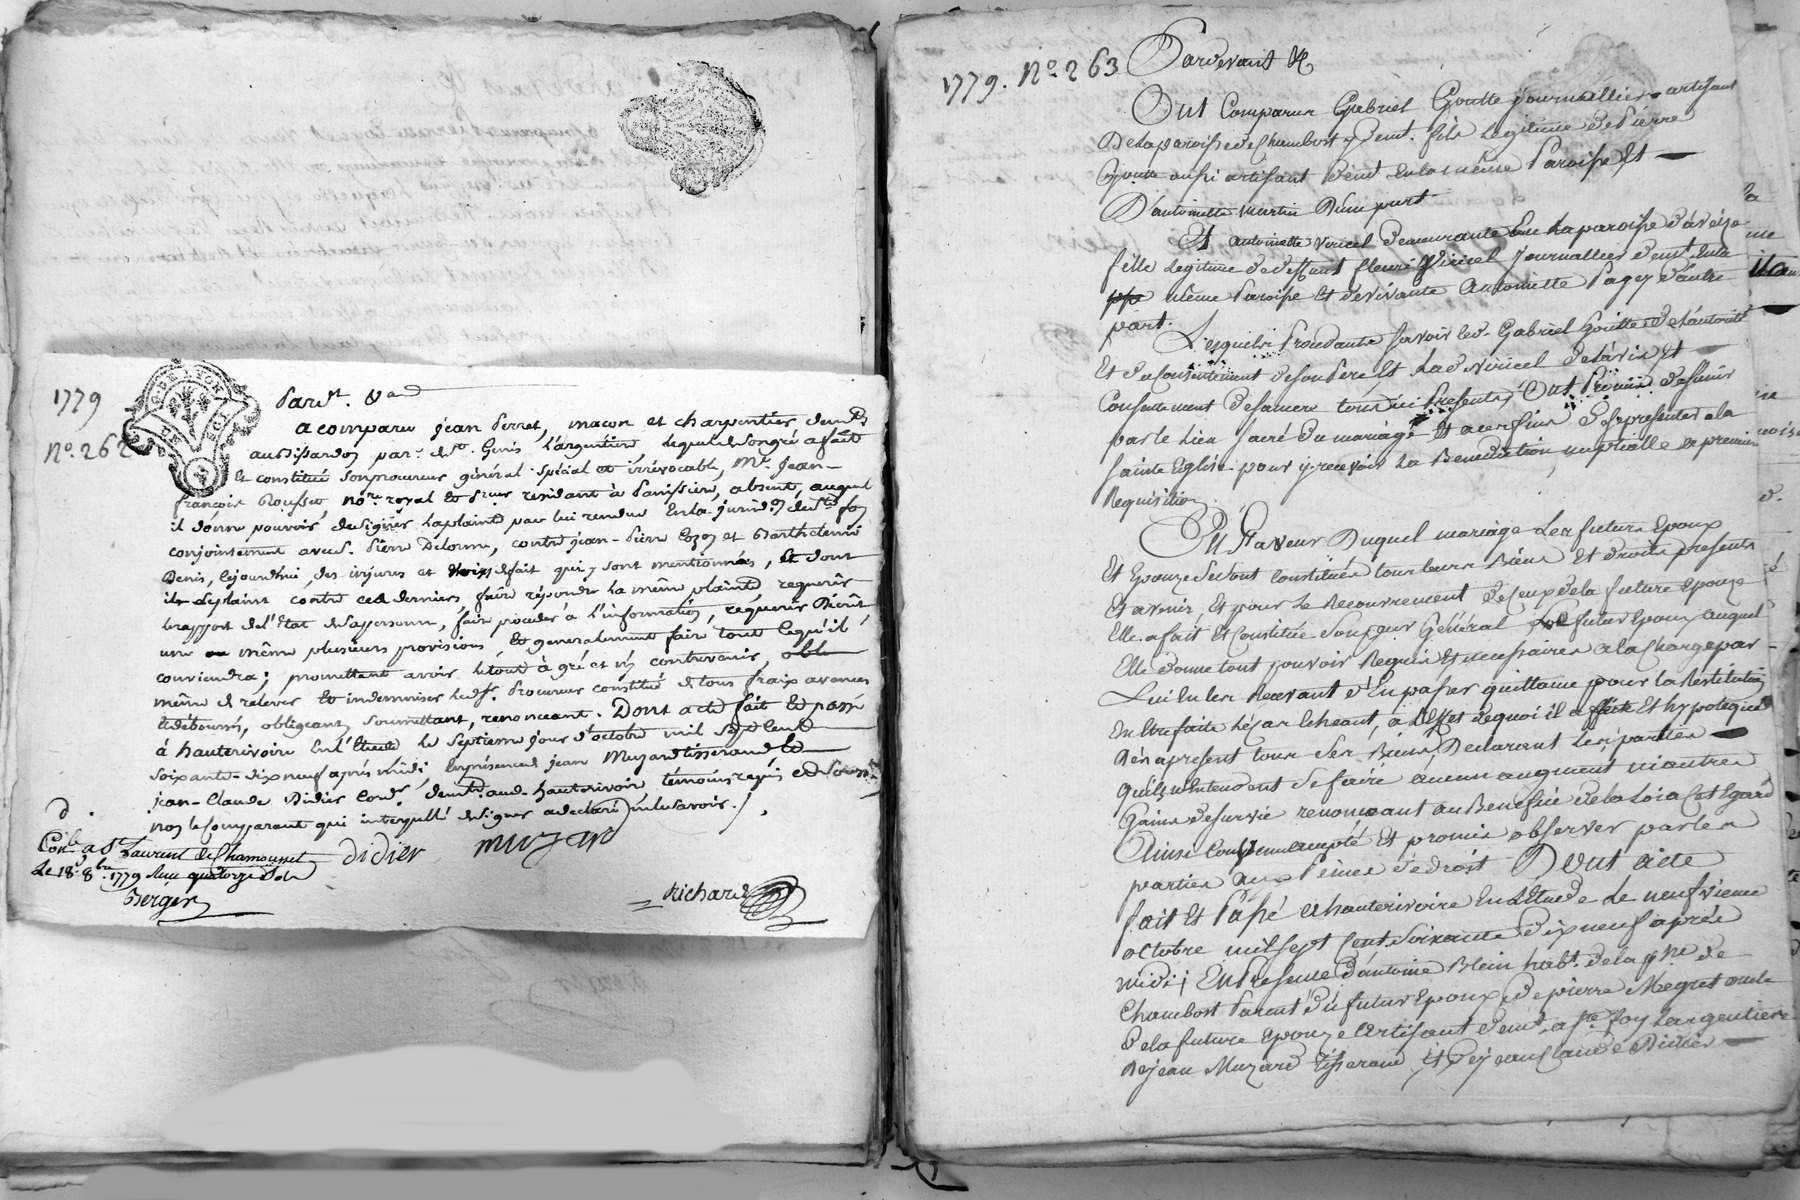 1779
No. 262
Pardt. &a
a comparu jean Perret, macon et charpentier demt.
au Bissardon par. de St. Genis L'argentiere lequel de Son gré a fait
et constitué son procureur général Spécial et irrévocable, Me. Jean-
françois Rousset, nore. royal et resident à Panissiere, absent, auquel
il donne pouvoir de Signer la plainte par lui rendue En la jurid. de Ste foy
conjointement avec Pierre Delorme, contre jean-Pierre et Barthelemi
Denis, cejourd'hui des injures et voix de fait qui y sont mentionnés, et dont
ils Se plaint contre ces derniers faire répondre la même plainte, requerir
le rapport de l'Etat de Sa personne, faire proceder à l'information, requerir Décret
une ou même plusieurs provisions, Et generalement faire tout ce qu'il
conviendra; promettant avoir le tout à gré et n'y contrevenir,
même de relever et indemniser led Sr. Procureur constitué de tous fraix avances
et débours, obligeant, Soumettant, renonceant. Dont acte fait et passé
à hauterivoire En l'Etude le Septieme jour d'octobre mil Sept Cent
Soixante-dix neuf après midi, En présence jean Muzard tisserand et
jean-Claude Didier demt. aud. hauterivoir, témoins requis et Soussignés
non le Comparant qui interpellé de Signer a declaré ne le Savoir./.
d.
Conlé. a St. Laurent de Chamousset
Le 18e. 8bre. 1779 Recu quatorze s.
Berger
didier
muzard
Richard
1779. No. 263
Pardevant &
Ont Comparu Gabriel Goutte journallier artisant
De la paroisse de Chambost y demt. fils Legitime de Pierre
Goutte aussi artisant demt en la même Paroisse Et
D'antoinette martin D'une part
Et antoinette Viricel demeurante En La paroisse d'aveize
fille Legitime de deffunt fleuri Viricel journallier demt. En la
même Paroisse Et de vivante antoinette Pagey d'autre
part.
Lesquelles Procédante Savoir led. Gabriel Goutte de L'autorité
Et du Consentement de Son Pere Et La de Viricel de L'avis Et
Consentement de Sa mere tous ici Presents, Ont Promis de S'unir
par le Lien Sacré du mariage Et a cer fins de Se presenter a la
Sainte Eglise pour y recevoir La Benediction nuptialle a premiere
Requisition
En Faveur Duquel mariage Les futurs Epoux
Et Epouze Se Sont Constitués tous leurs Biens Et droits presents
Et avenir, Et pour Le Recouvrement de Ceux de la future Epouze
Elle a fait Et Constitué Son pcur Général Le futur Epoux auquel
Elle donne tout pouvoir Requis Et necessaires a la Charge par-
Lui En les Recevant d'En passer quittance pour La Restitution
En Etre faite Le Cas Echeant, a L'effet de quoi il a affecté Et hypotequé
Dès apresent tous Ses Biens, Declarant Les parties
qu'ils n'Entendent Se faire aucun augment ni autres
Gains de Survie renonceant au Benefice de la Loi a Cet Egard
Ainsi Convenu accepté Et promis observer par les
parties aux Peines de droit Dont acte
fait Et Passé a hauterivoire En L'Etude Le neufvieme
octobre mil Sept Cent Soixante Dix neuf après
midi, En Presence d'antoine Blein habt. de la psse de
Chambost Parent du futur Epoux, de pierre Megret oncle
De la future Epouze artisant demt. a Ste foy Largentiere
De jean Muzard Tisserand Et De jean Claude Didier